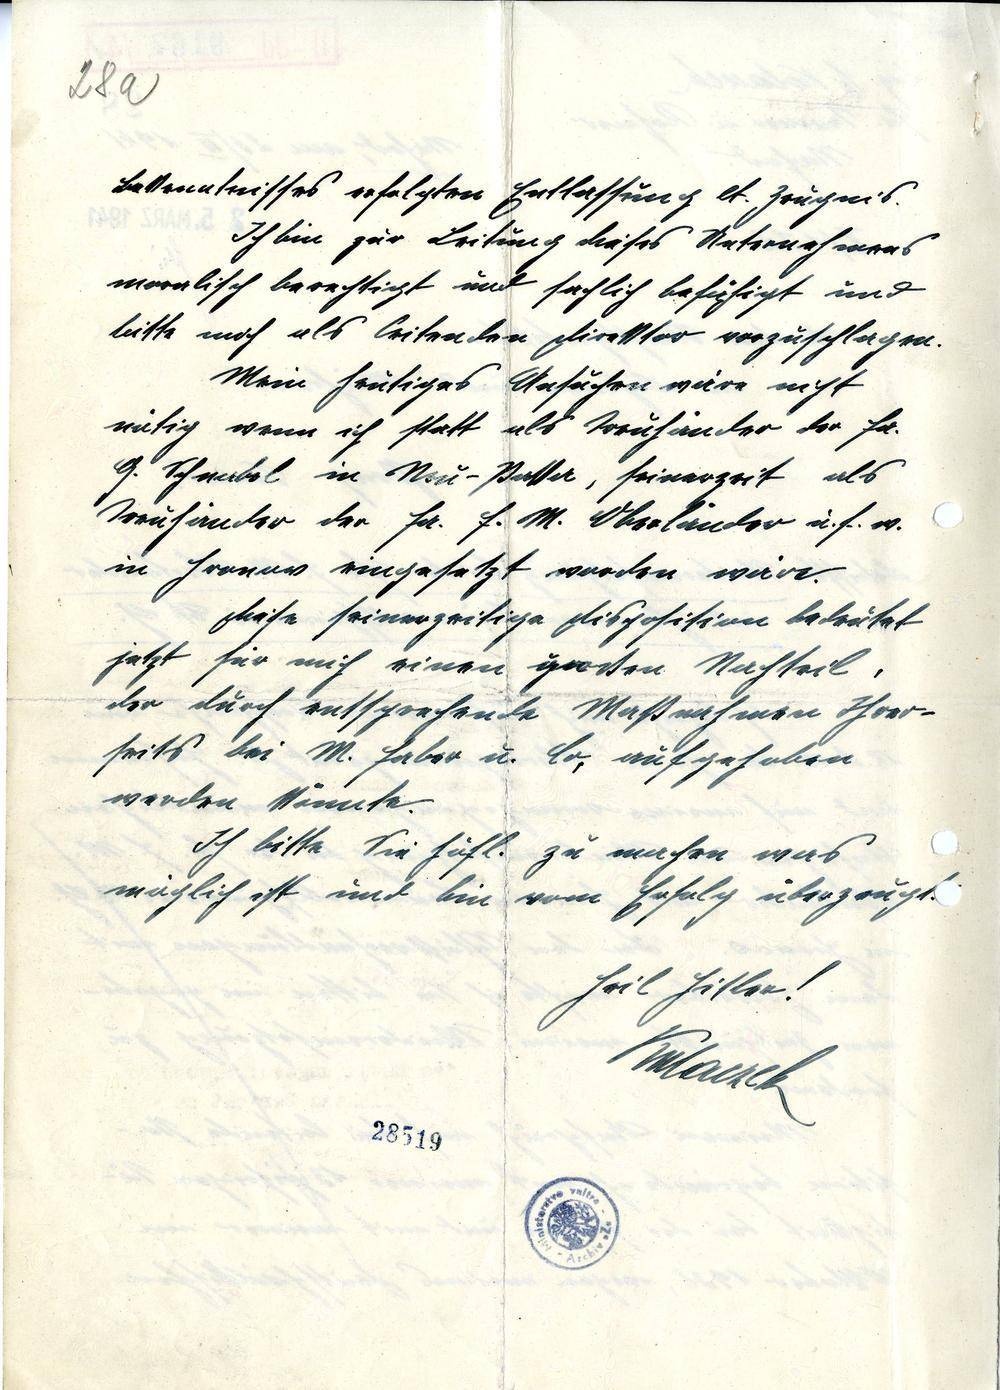 28a
Bekenntnisses erfolgten Entlassung lt. Zeugnis.
Ich bin zur Leitung dieses Unternehmens
moralisch berechtigt und fachlich befähigt und
bitte mich als leitenden Direktor vorzuschlagen.
Mein heutiges Ansuchen wäre nicht
nötig wenn ich statt als Treuhänder der Fa.
G. Schnabel in Neu-Pakka, seinerzeit als
Treuhänder der Fa. F. M. Oberländer u.s.w.
in Hronov eingesetzt worden wäre.
Diese seinerzeitige Disposition bedeutet
jetzt für mich einen großen Nachteil,
der durch entsprechende Maßnahmen Ihrer-
seits bei M. Faber u. Co, aufgehoben
werden könnte.
Ich bitte Sie höfl. zu machen was
möglich ist und bin vom Erfolg überzeugt.
Heil Hitler!
28519
Ministerstvo vnitra - Archiv